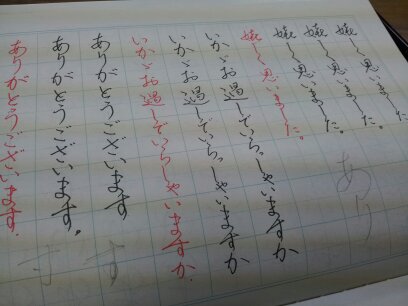 嬉しく思いました。
嬉しく思いました。
嬉しく思いました。
嬉しく思いました。
いかゞお過しでいらっしゃいますか
いかゞお過しでいらっしゃいますか
いかゞお過しでいらっしゃいますか
ありがとうございます
ありがとうございます。
ありがとうございます。
あり